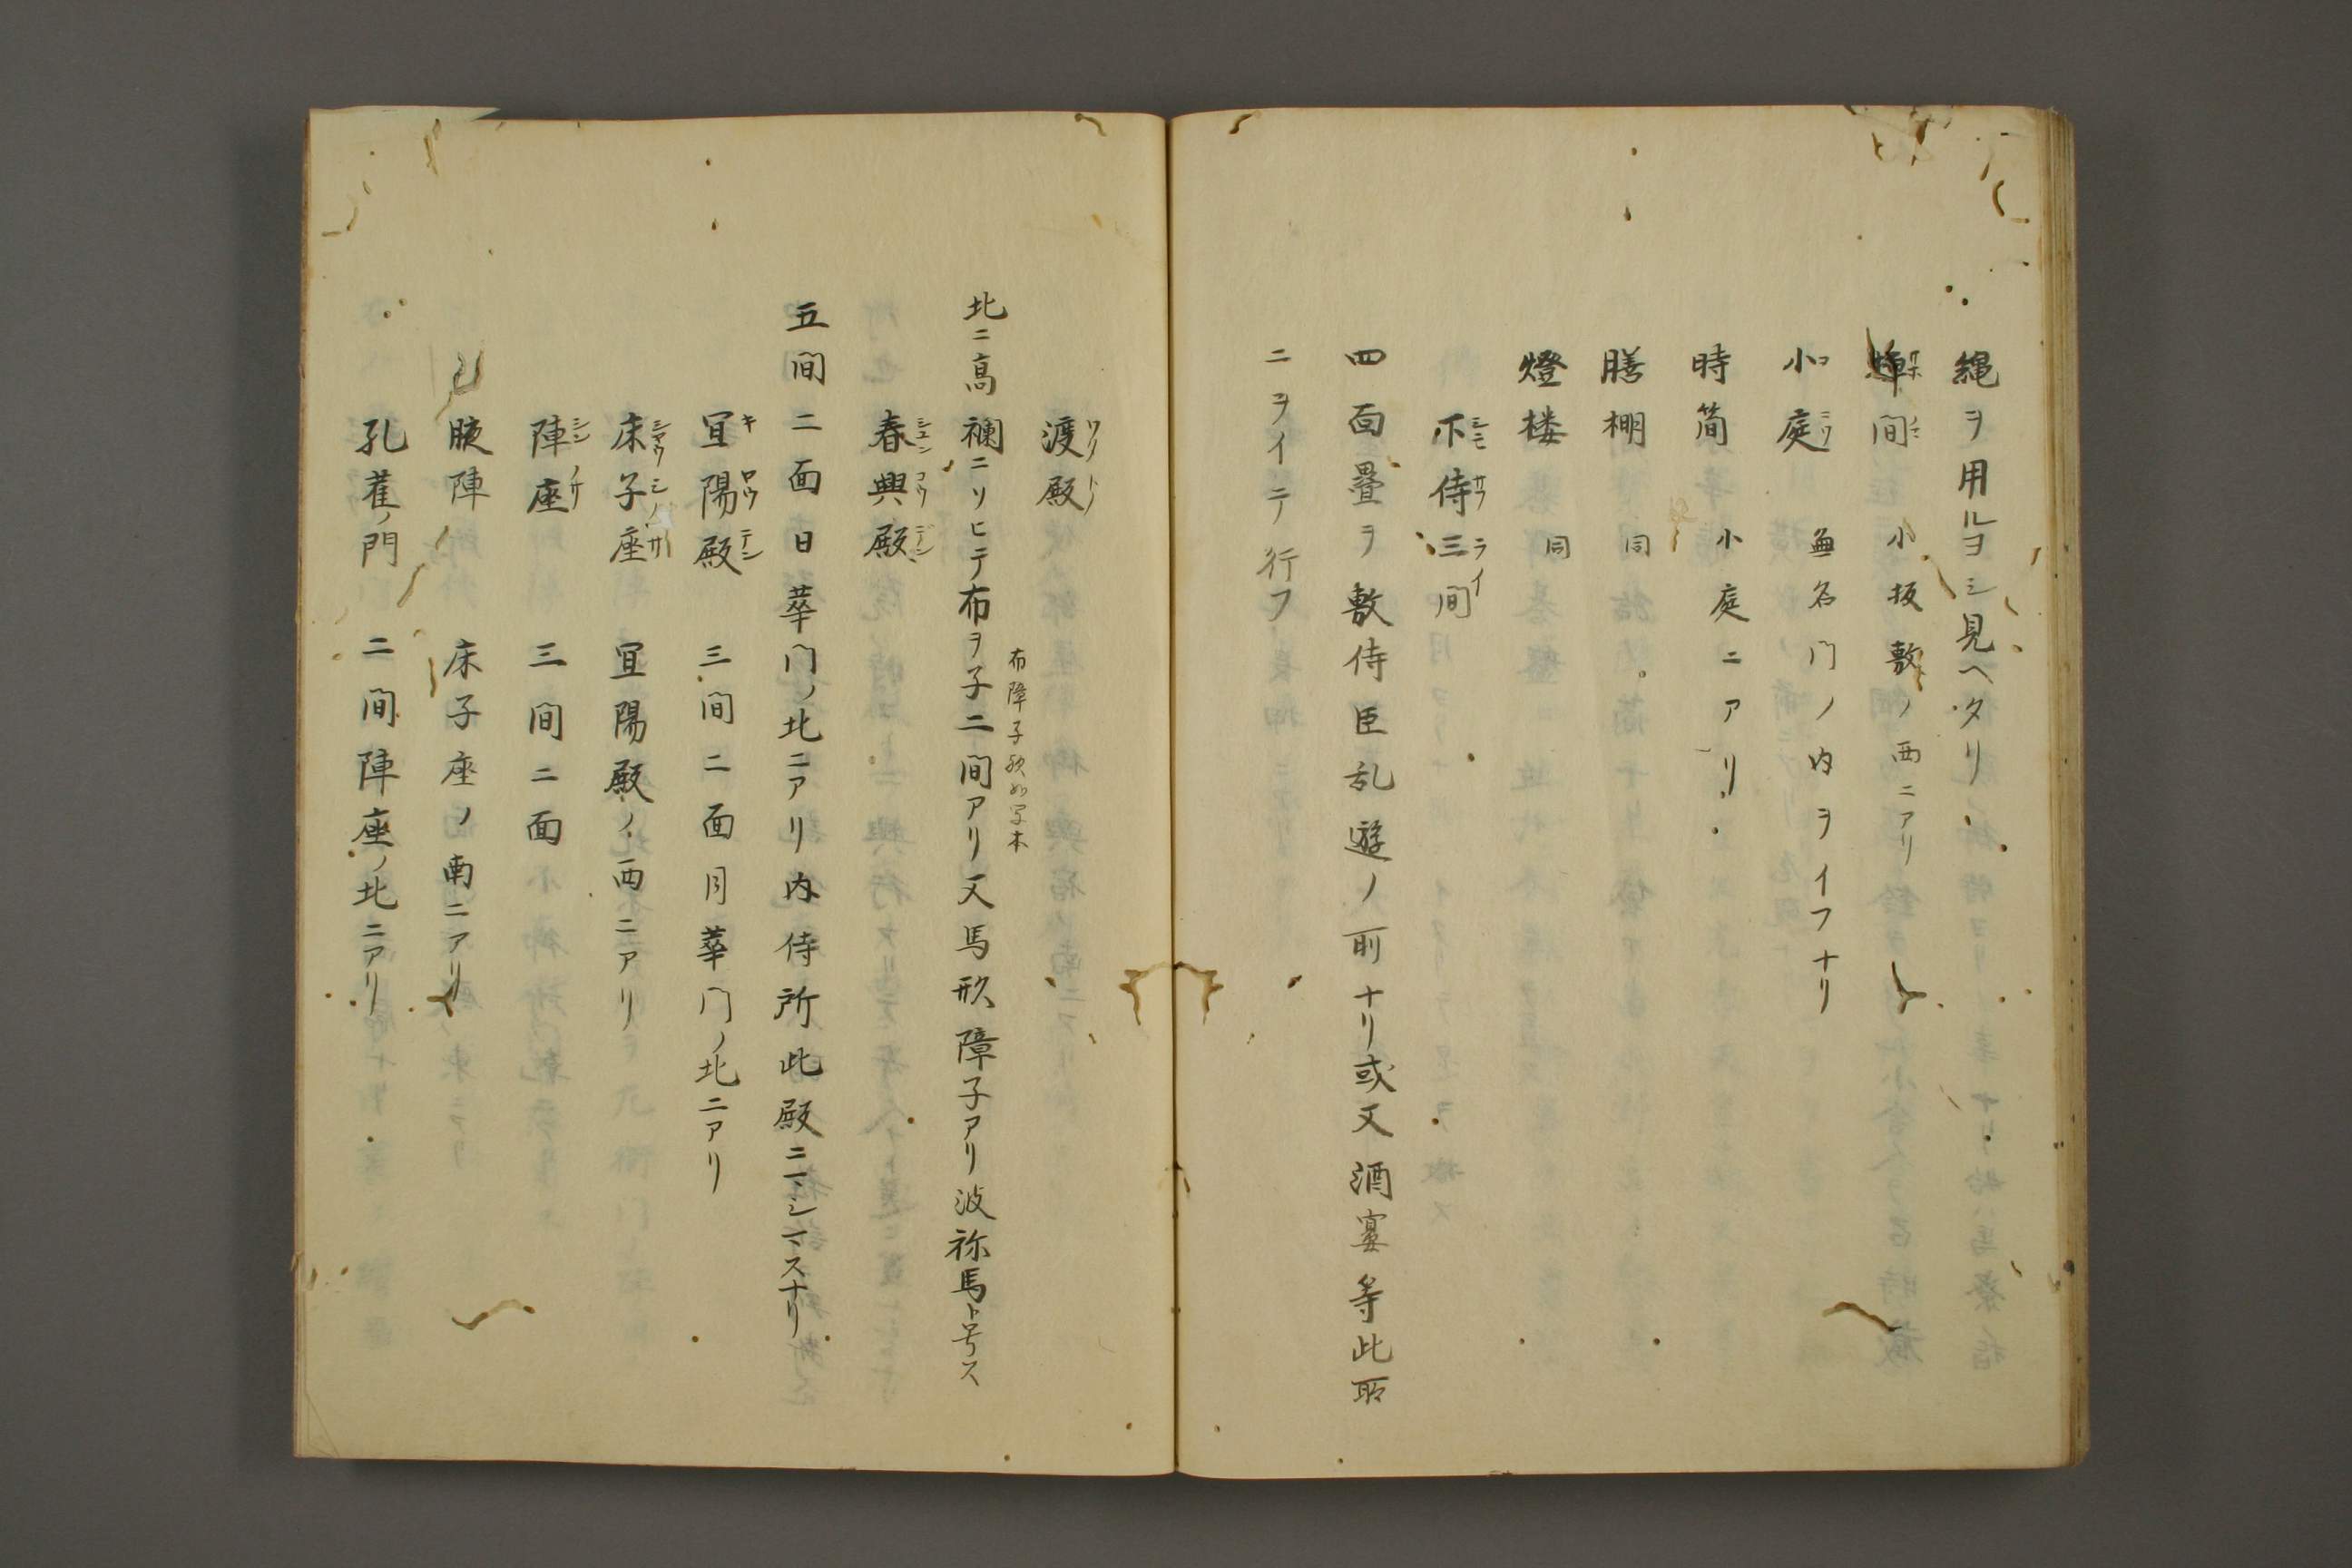 縄ヲ用ルヨシ見ヘタリ
間 小板敷ノ西ニアリ
小庭 無名門ノ内ヲイフナリ
時簡 小庭ニアリ
膳棚 同
燈楼 同
下侍三間
四面畳ヲ敷侍臣乱遊ノ所ナリ或又酒宴等此所
ニヲイテ行フ
渡殿
布障子歟如写本
北ニ高欄ニソヒテ布ヲ子二間アリ又馬形障子アリ波祢馬ト号ス
春興殿
五間二面日華門ノ北ニアリ内侍所此殿ニマシマスナリ
宜陽殿 三間二面月華門ノ北ニアリ
床子座 宜陽殿ノ西ニアリ
陣座 三間二面
腋陣 床子座ノ南ニアリ
孔雀ノ門 二間陣座ノ北ニアリ